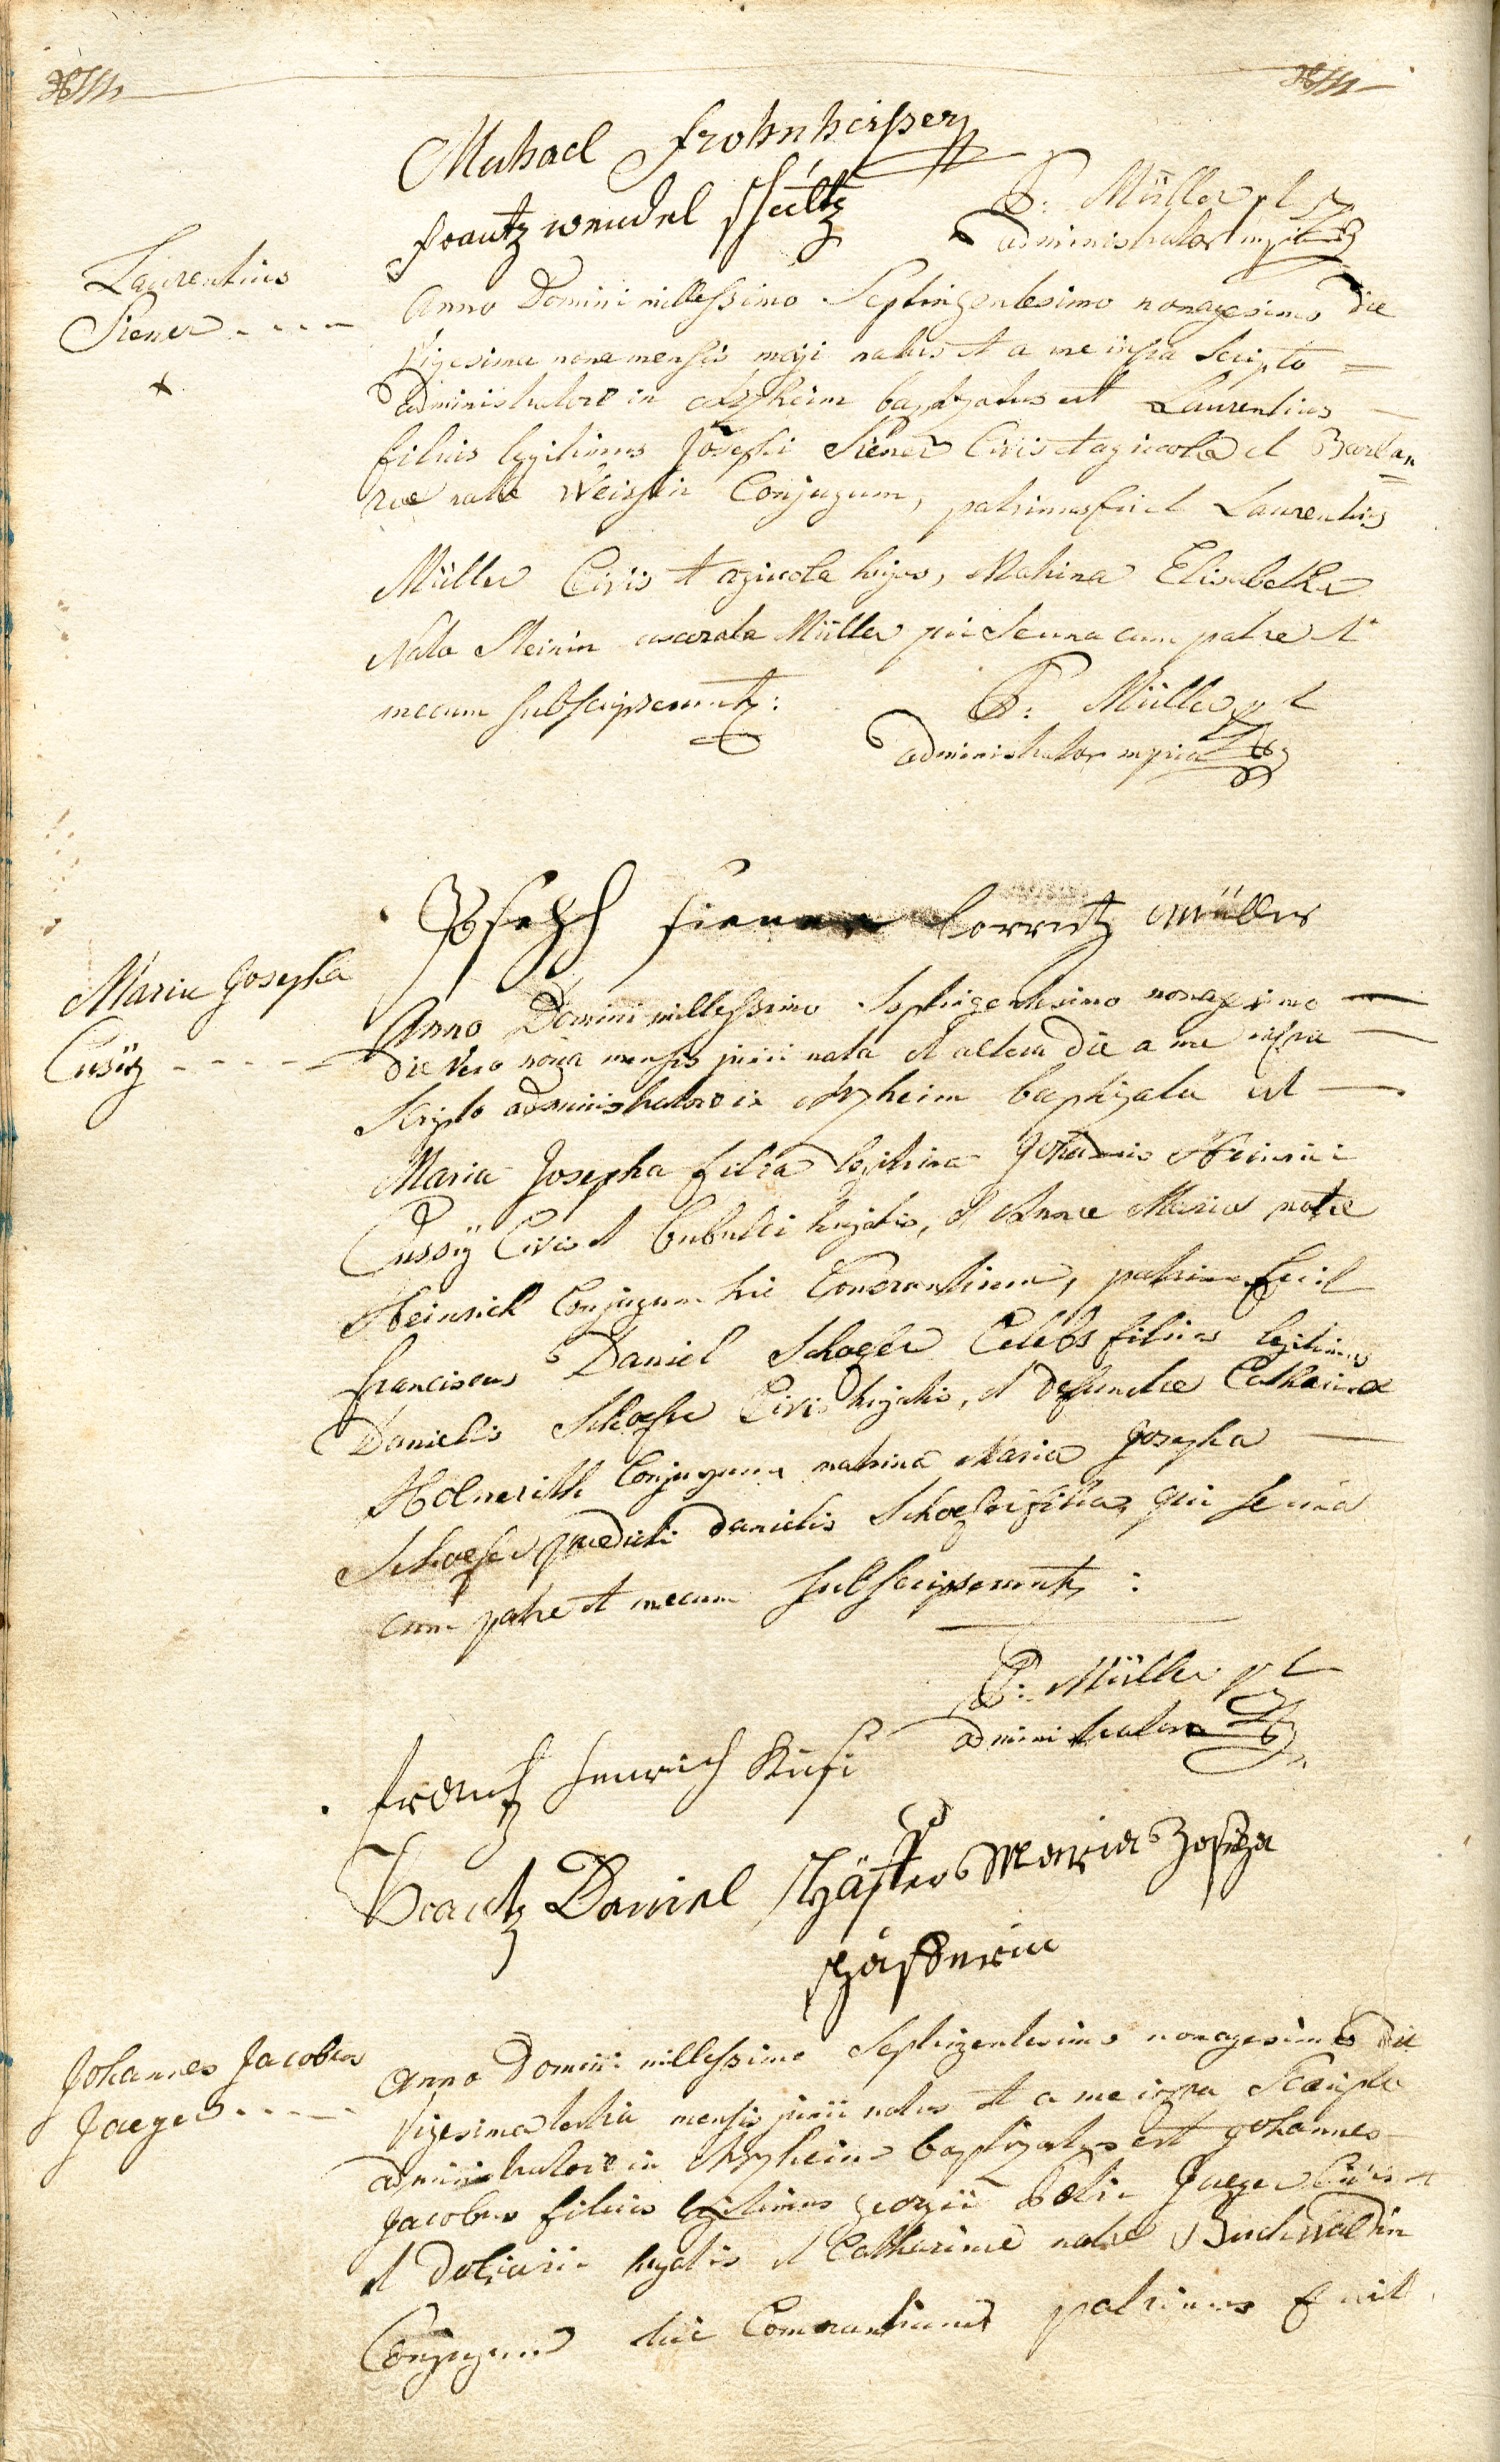 Michael frohnheisser
frantz wendel schültz
P: Müller p t
administrator mpria
Laurentius
Siener - - - -
Anno Domini millessimo Septingentesimo nonagesimo die
Vigesima nona mensis maji natus et a me infra scripto =
administratore in baptizatus est Laurentius —
filius legitimus Josephi Siener Civis et agricolæ et Barba=
ræ natæ Weissin Conjugum, patrinus fuit Laurentius
Müller Civis et agricola hujas, Matrina Elisabetha
Nata Steinin uxorata Müller qui se una cum patre et
mecum subscripserunt:
P: Müller p t
administrator mpria
Joseph siener lorentz müller
Maria Josepha
Cusÿ - - - - -
Anno Domini millessimo Septingentesimo nonagesimo —
die vero nona mensis junii nata et altera die a me infra —
Scripto administratore in baptizata est —
Maria Josepha filia legitima Johannis Heinrici
Cussÿ Civis et bubulci hujatis, et Annæ Mariæ natæ
Heinrich Conjugum hic Comorantium, patrinus fuit
franciscus Daniel Schaefer Celebs filius legitimus
Danielis Schaefer Civis hujatis, et defunctæ Catharinæ
Conjugum matrina Maria Josepha —
Schaefer prædicti danielis Schaefer filia, qui se una
cum patre et mecum subscripserunt :
P: Müller p t
administrator
frantz henrich Kusi
Frantz Daniel schäffer Maria Josepha
schäfferin
Johannes Jacobus
Jaeger - - - -
Anno Domini millessimo Septingentesimo nonagesimo die
Vigesima tertia mensis junii natus et a me infra Scripto
administratore in baptizatus est Johannes
Jacobus filius legitimus georgii Jaeger Civis
et doliarii hujatis et Catharinæ natæ Buchwaldin
Conjugum hic Comorantium patrinus fuit